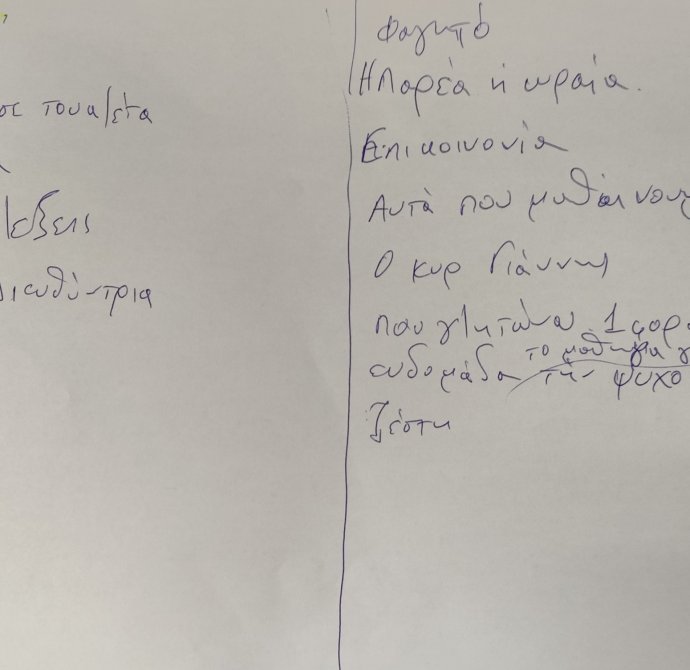 σε τουαλέτα
λέξεις
Διευθύντρια
Φαγητό
Η παρέα η ωραία.
Επικοινωνία
Αυτά που μαθαίνουμ
Ο κυρ Γιάννης
που γλητώνω 1 φορ
το μάθημα γ
ευδομάδα της ψυχο
Ζέστη